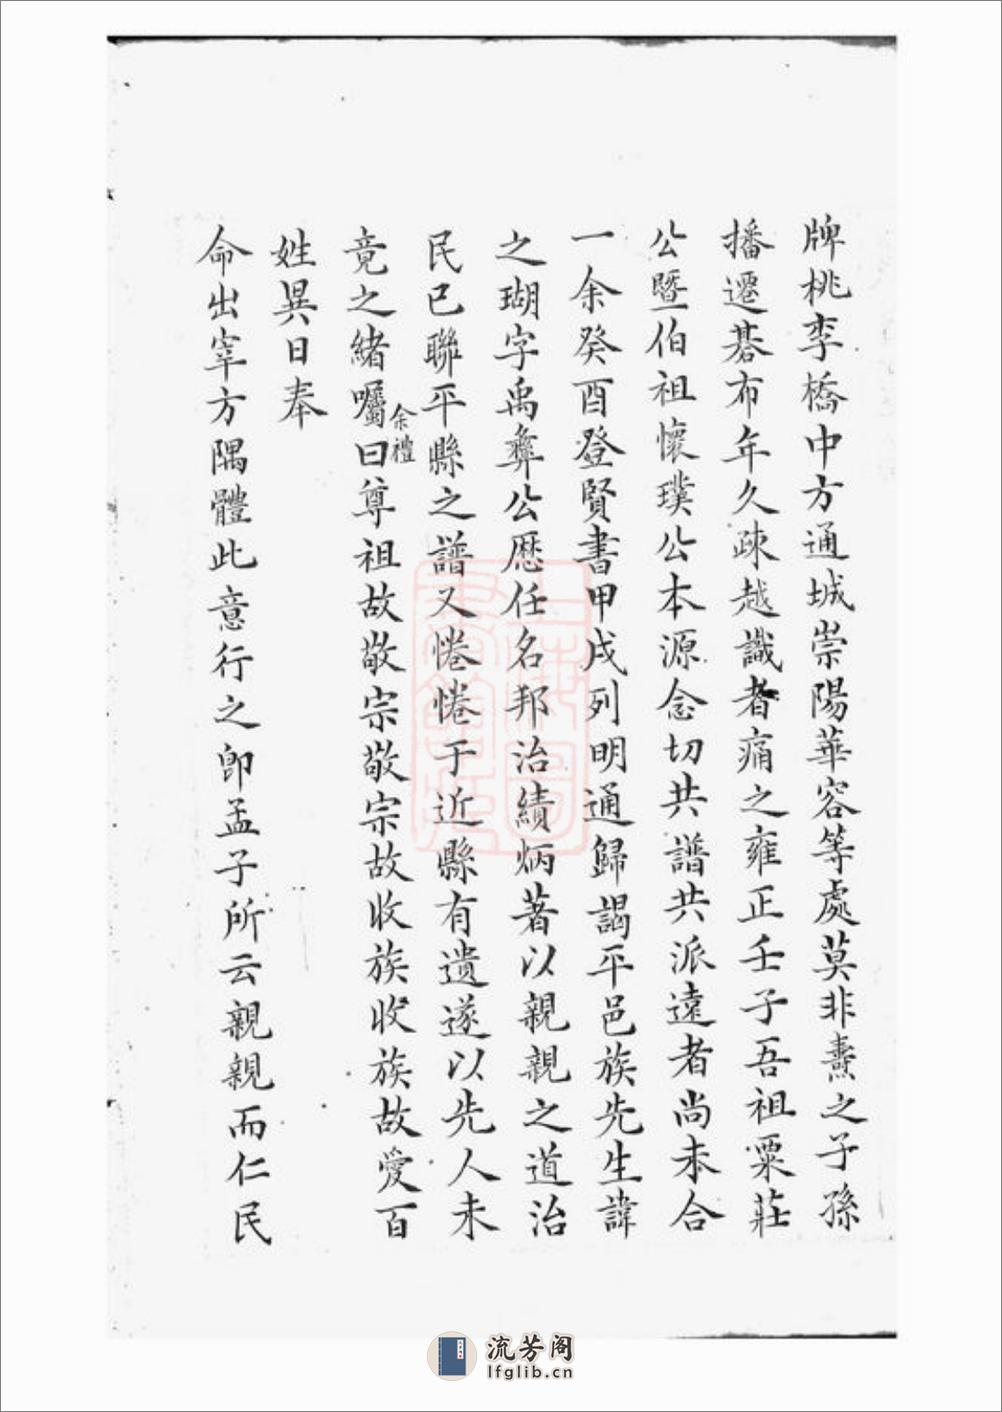 牌桃李橋中方通城崇陽華容等處莫非燾之子孫
播遷碁布年久疎越識者痛之雍正壬子吾祖粟莊
公暨伯祖懷璞公本源念切共譜共派遠者尚未合
一余癸酉登賢書甲戌列明通歸謁平邑族先生諱
之瑚字禹彝公歷任名邦治績炳著以親親之道治
民已聯平縣之譜又惓惓于近縣有遺遂以先人未
竟之緒囑余禮曰尊祖故敬宗敬宗故收族收族故愛百
姓異日奉
命出宰方隅體此意行之卽孟子所云親親而仁民
流芳阁
lfglib.cn